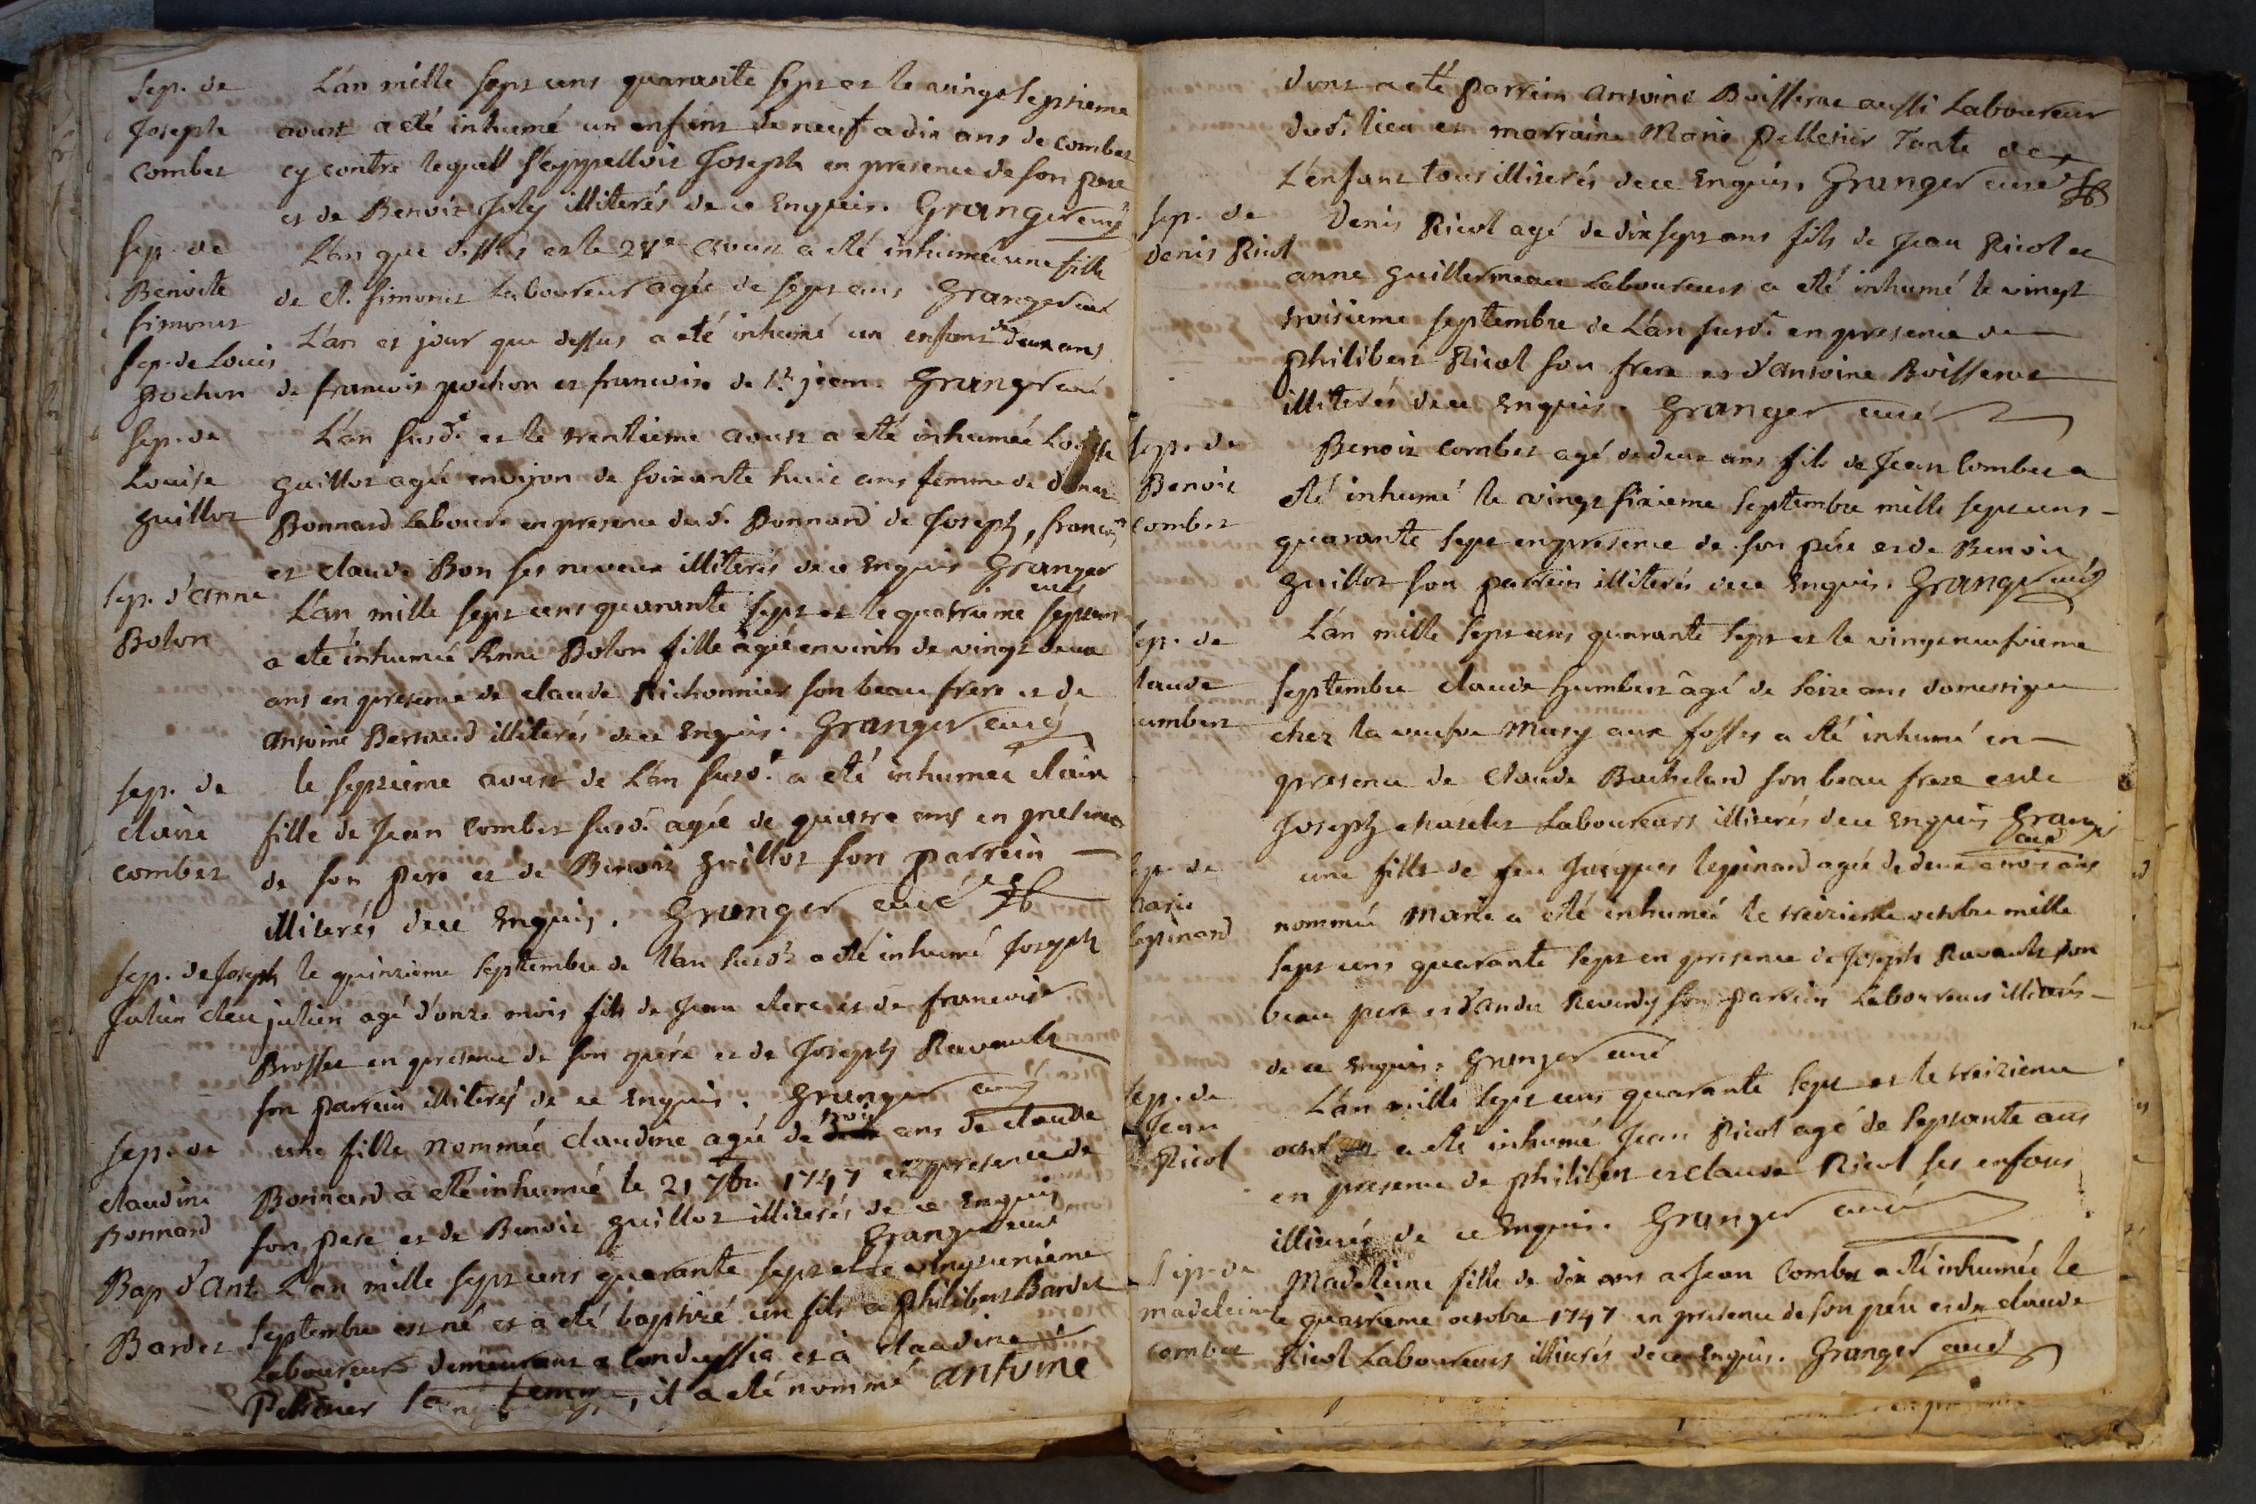 Sep. de
Joseph
Combet
L'an mille sept cens quarante sept et le vingt septieme
aoust a eté inhumé un enfant de neuf a dix ans de combet
cy contre lequel s'appelloit Joseph en presence de son pere
et de Benoit Joly illiterés de ce Enquis. Granger curé
Sep. de
Benoite
Simonet
L'an que dessus et le 28e aoust a eté inhumée une fille
de Cl. Simonet Laboureur agée de sept ans Granger curé
Sep. de Louis
pochon
L'an et jour que dessus a eté inhumé un enfant de deux ans
de francois pochon et francoise de St. jean. Granger curé
Sep. de
Louise
guillot
L'an susd. et le trentieme aoust a eté inhumée Louise
guillot agée environ de soixante huit ans femme de
Bonnard Labour. en presence dud. Bonnard de Joseph, francois
et claude Bon ses neveux illiterés de ce Enquis Granger
curé
Sep. d'anne
Bolon
L'an mille sept cens quarante sept et le quatrieme septem
a eté inhumée Anne Bolon fille agée environ de vingt deux
ans en presence de claude Richonnier son beau frere et de
Antoine Bernard illiterés de ce Enquis. Granger curé
Sep. de
claire
combet
le septieme aoust de L'an susd. a eté inhumée claire
fille de Jean Combet susd. agée de quatre ans en presence
de son pere et de Benoit guillot son parrein
illiterés de ce Enquis. Granger curé
Sep. de Joseph
Julien clerc
le quinzieme septembre de l'an susd. a eté inhumé Joseph
julien agé d'onze mois fils de Jean clerc et de francoise
Brosse en presence de son pére et de Joseph Ravault
son parrein illiterés de ce Enquis. Granger curé
Sep. de
claudine
Bonnard
une fille nommée claudine agée de trois ans de claude
Bonnard a eté inhumée le 21 7bre 1747 en presence de
son pere et de Benoit guillot illiterés de ce Enquis
Granger curé
Bap d'Ant.
Bardet
L'an mille sept cens quarante sept et le vingt unieme
Septembre est né et a eté baptizé un fils a philibert Bardet
Laboureur demeurant a condeyssia et à claudine
Pelletier sa femme, il a eté nommé antoine
dont a eté parrein antoine Boisserat aussi Laboureur
dud. lieu et marraine Marie pelletier Tante de
L'enfant tous illiterés de ce Enquis. Granger curé
Sep. de
denis Ricol
Denis Ricol agé de dix sept ans fils de Jean Ricol et
anne guillermeau Laboureurs a eté inhumé le vingt
troisieme septembre de L'an susd. en presence de
philibert Ricol son frere et d'antoine Boisserat
illiterés de ce Enquis. Granger curé
Sep. de
Benoit
combet
Benoit combet agé de deux ans fils de Jean Combet a
eté inhumé le vingt sixieme septembre mille sept cens
quarante sept en presence de son pére et de Benoit
guillot son parrein illiterés de ce Enquis. Granger curé
Sep. de
laude
umbert
L'an mille sept cens quarante sept et le vingt neufvieme
septembre claude humbert agé de seize ans domestique
chez la veufve Musy aux fosses a eté inhumé en
presence de Claude Bachelard son beau frere et de
Joseph Laboureurs illiterés de ce Enquis Granger
curé
Sep. de
marie
lepinard
une fille de feu Jacques lepinard agée de deux a trois ans
nommée Marie a eté inhumée le treizieme octobre mille
sept cens quarante sept en presence de Joseph Ravault son
beau pere et d'andre Reverdy son parrein Laboureurs illiterés
de ce Enquis. Granger curé
Sep. de
Jean
Ricol
L'an mille sept cens quarante sept et le treizieme
octobre a eté inhumé Jean Ricol agé de septante ans
en presence de philibert et claude Ricol ses enfans
illiterés de ce Enquis. Granger curé
Sep. de
madeleine
combet
Madeleine fille de dix ans a Jean Combet a eté inhumée le
le quatrieme octobre 1747 en presence de son pére et de claude
Ricol Laboureurs illiterés de ce Enquis. Granger curé